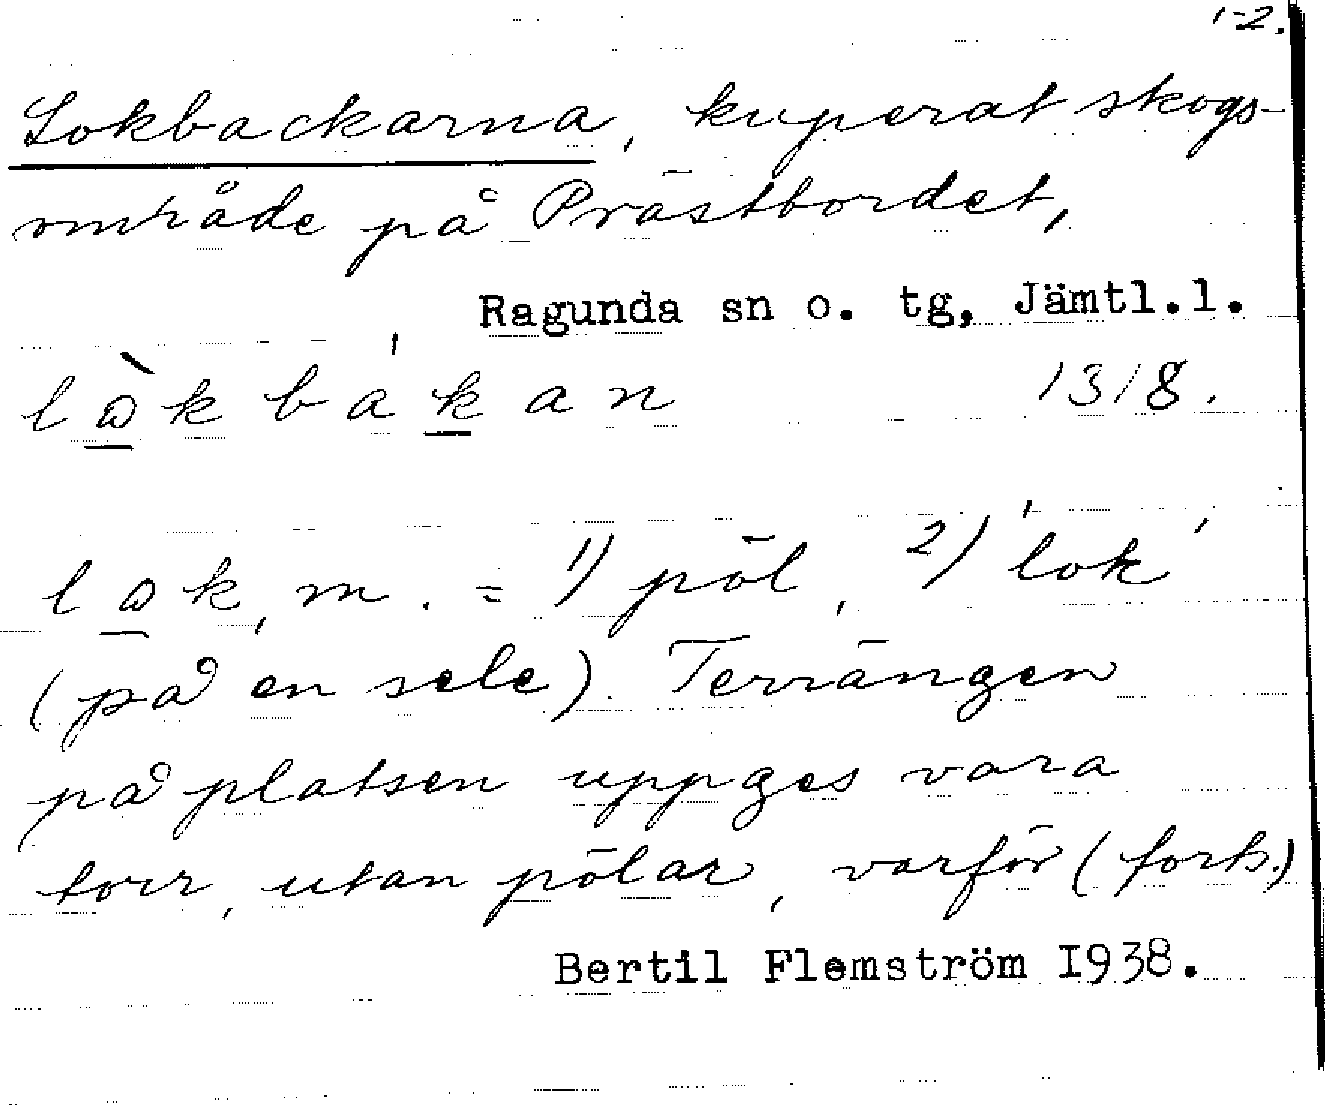 1-2.
Lokbackarna, kuperat skogs-
område på Prästbordet,
Ragunda sn o. tg, Jämtl.l.
lòkbákan 1318.
lok, m. = 1) pöl, 2) 'lok'
(på en sele). Terrängen
på platsen uppges vara
torr, utan pölar, varför (forts.)
Bertil Flemström 1938.